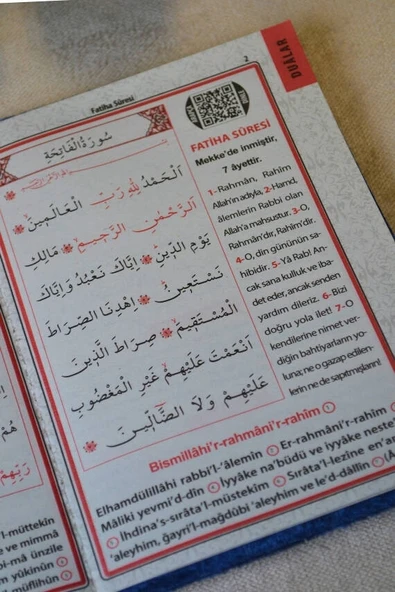 Fatiha Sûresi
2
DUALAR
سُورَةُ الْفَاتِحَةِ
اَلْحَمْدُ لِلّٰهِ رَبِّ الْعَالَمِينَ
اَلرَّحْمٰنِ الرَّحِيمِ مَالِكِ
يَوْمِ الدِّينِ اِيَّاكَ نَعْبُدُ وَاِيَّاكَ
نَسْتَعِينُ اِهْدِنَا الصِّرَاطَ
الْمُسْتَقِيمَ صِرَاطَ الَّذِينَ
اَنْعَمْتَ عَلَيْهِمْ غَيْرِ الْمَغْضُوبِ
عَلَيْهِمْ وَلَا الضَّالِّينَ
FATİHA SÛRESİ
Mekke'de inmiştir,
7 âyettir.
1-Rahmân, Rahîm
Allah'ın adıyla, 2-Hamd,
âlemlerin Rabbi olan
Allah'a mahsustur, 3-O,
Rahmân'dır, Rahîm'dir.
4-O, din gününün sa-
hibidir. 5-Yâ Rab! An-
cak sana kulluk ve iba-
det eder, ancak senden
yardım dileriz. 6-Bizi
doğru yola ilet! 7-O
kendilerine nimet ver-
diğin bahtiyarların yo-
luna; ne o gazap edilen-
lerin ne de sapıtmışların!
Bismillâhi'r-rahmâni'r-rahîm 1
Elhamdülillâhi rabbi'l-'âlemîn 2 Er-rahmâni'r-rahîm
Mâliki yevmi'd-dîn 4 İyyâke na'büdü ve iyyâke neste
5 İhdina's-sırâta'l-müstekîm 6 Sırâta'l-lezîne en'a
'aleyhim, ğayri'l-mağdûbi 'aleyhim ve le'd-dâllîn
هُمْ
رَبِّهِمْ
'l-müttekîn
e ve mimmâ
bi-mâ ünzile
m yûkinûn
müflihûn